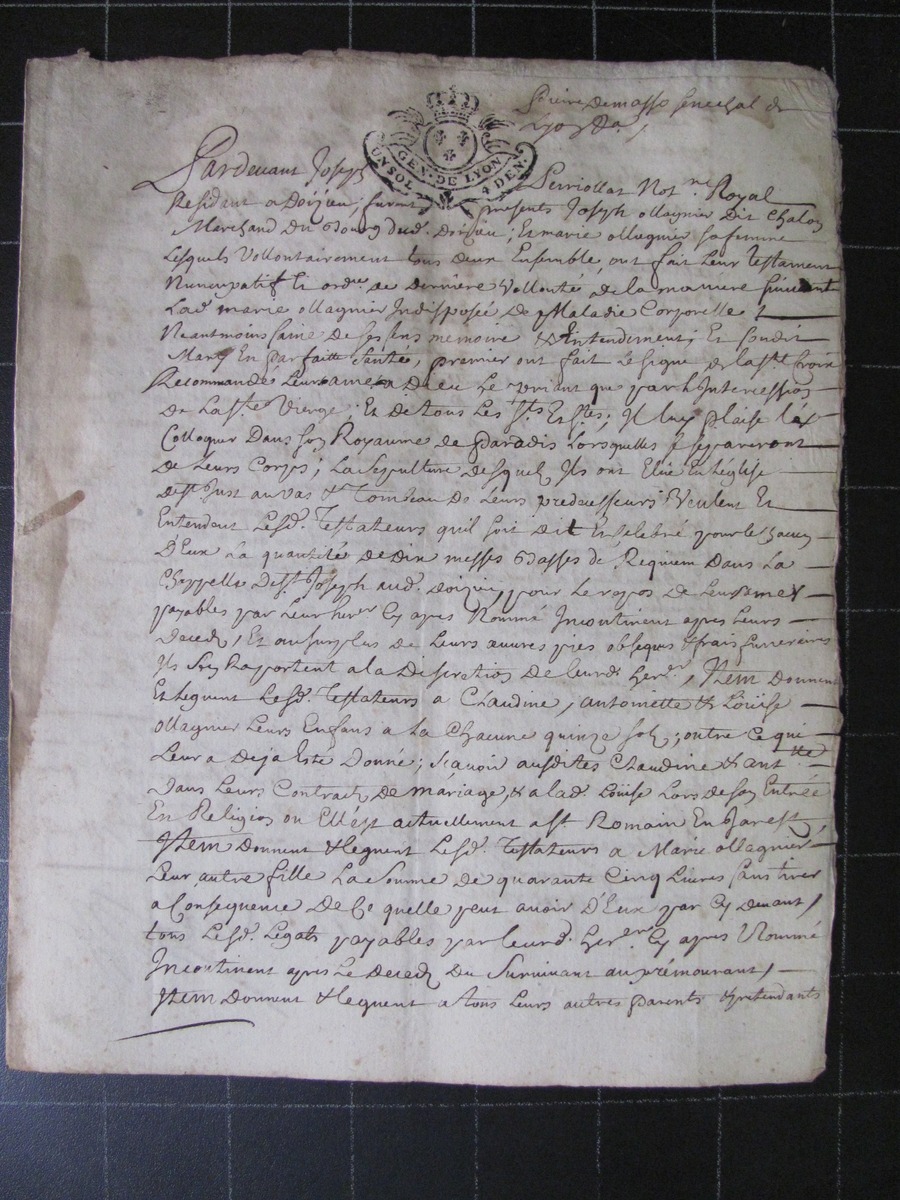 Pierre Demasso Senechal de
Lyon
GEN. DE LYON
UN SOL 4 DEN.
Pardevant Joseph Perriollat Not.re Royal
Residant a Doizieu, furent presents Joseph ollagnier Dit Chalon
Marchand Du Bourg dud. Doizieu; Et marie ollagnier sa femme
Lesquels Vollontairement tous deux Ensemble, ont fait Leur Testament
Nuncupatif et ordre de Derniere Vollonté de la maniere suivante
Lad. marie ollagnier Indisposée De Maladie Corporelle
Neantmoins saine de ses sens memoire & Entendement, Et sondit
Mary En parfaitte santé, premier ont fait le signe de la ste Croix
Recommandé Leurs ames a Dieu Le priant que par L'Intercession
De La ste Vierge; Et de tous Les sts Et stes; Il luy plaise les
Colloquer Dans son Royaume de paradis Lorsquelles se separeront
De Leurs Corps; La sepulture desquels Ils ont Elue En L'église
de st Just au vas & Tombeau De Leurs predecesseurs Veulent Et
Entendent Lesd. Testateurs quil soit Dit & Celebré pour le chacun
D'Eux La quantité de dix messes Basses de Requiem Dans La
Chappelle de st Joseph aud. Doizieu, pour Le repos De Leurs ames
payables par Leur her.er Cy apres Nommé Incontinent apres Leurs
Deced, Et au surplus de Leurs œuvres pies obseques & frais funeraires
Ils s'en Raportent a la Discretion de leurd. her.er, Item Donnent
Et Leguent Lesd. Testateurs a Claudine, antoinette & Loüise
ollagnier Leurs Enfans a La Chacune quinze sols; outre Ce qui
Leur a Deja Este Donné; scavoir ausdites Claudine & ant.tte
Dans Leurs Contrats De mariage, & a lad. Loüise Lors de son Entrée
En Religion ou Elle est actuellement a st Romain En Jarest
Item Donnent & leguent Lesd. Testateurs a Marie ollagnier
Leur autre fille La somme de quarante Cinq Livres sans tirer
a Consequence De Ce quelle peut avoir D'Eux par Cy devant,
tous Lesd. Legats payables par leurd. her.er Cy apres Nommé
Incontinent apres Le Deced Du Survivant au premourant,
Item Donnent & leguent a tous Leurs autres parents & pretendants